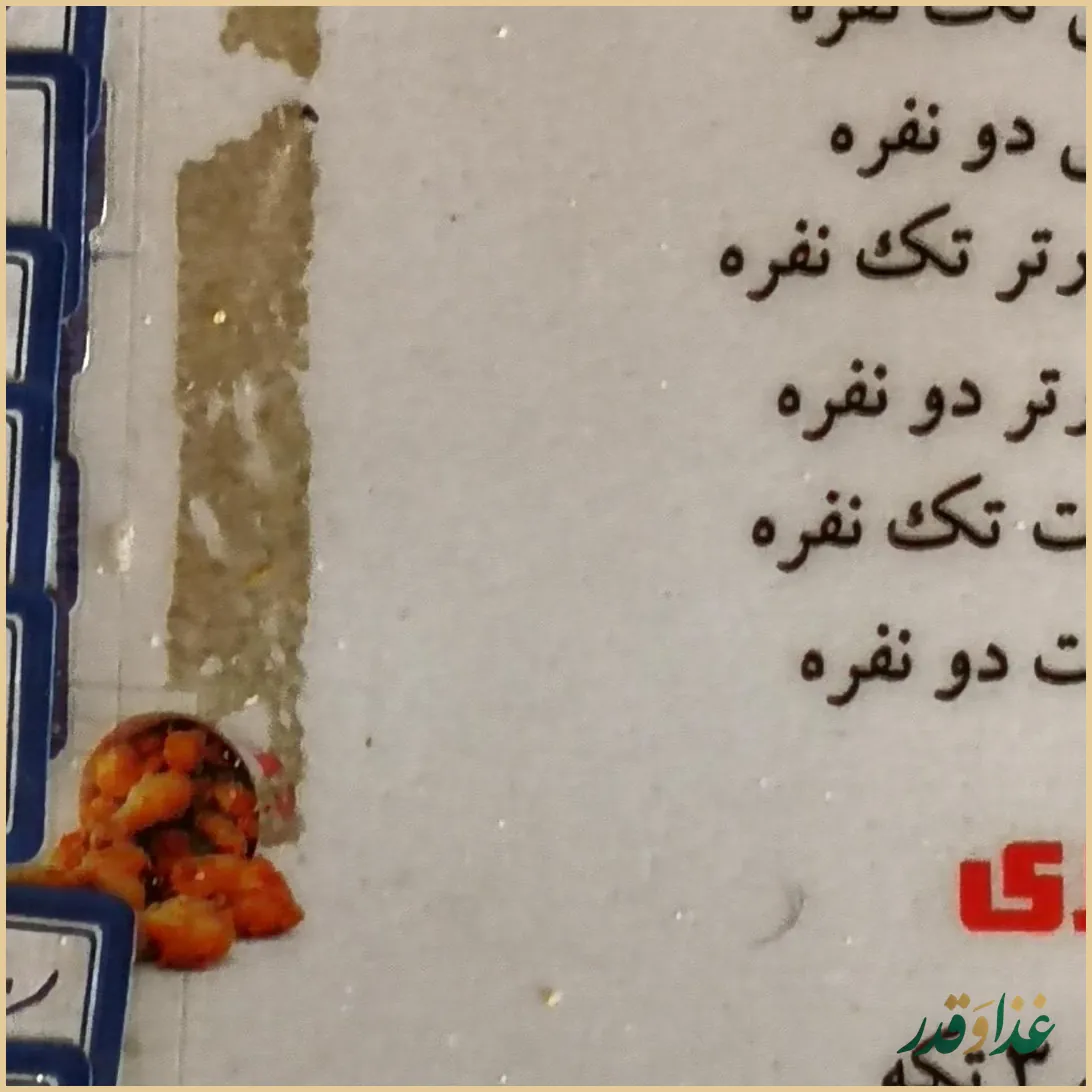 تک نفره
دو نفره
تک نفره
دو نفره
تک نفره
دو نفره
۳ تکه
غذا وَ قدر